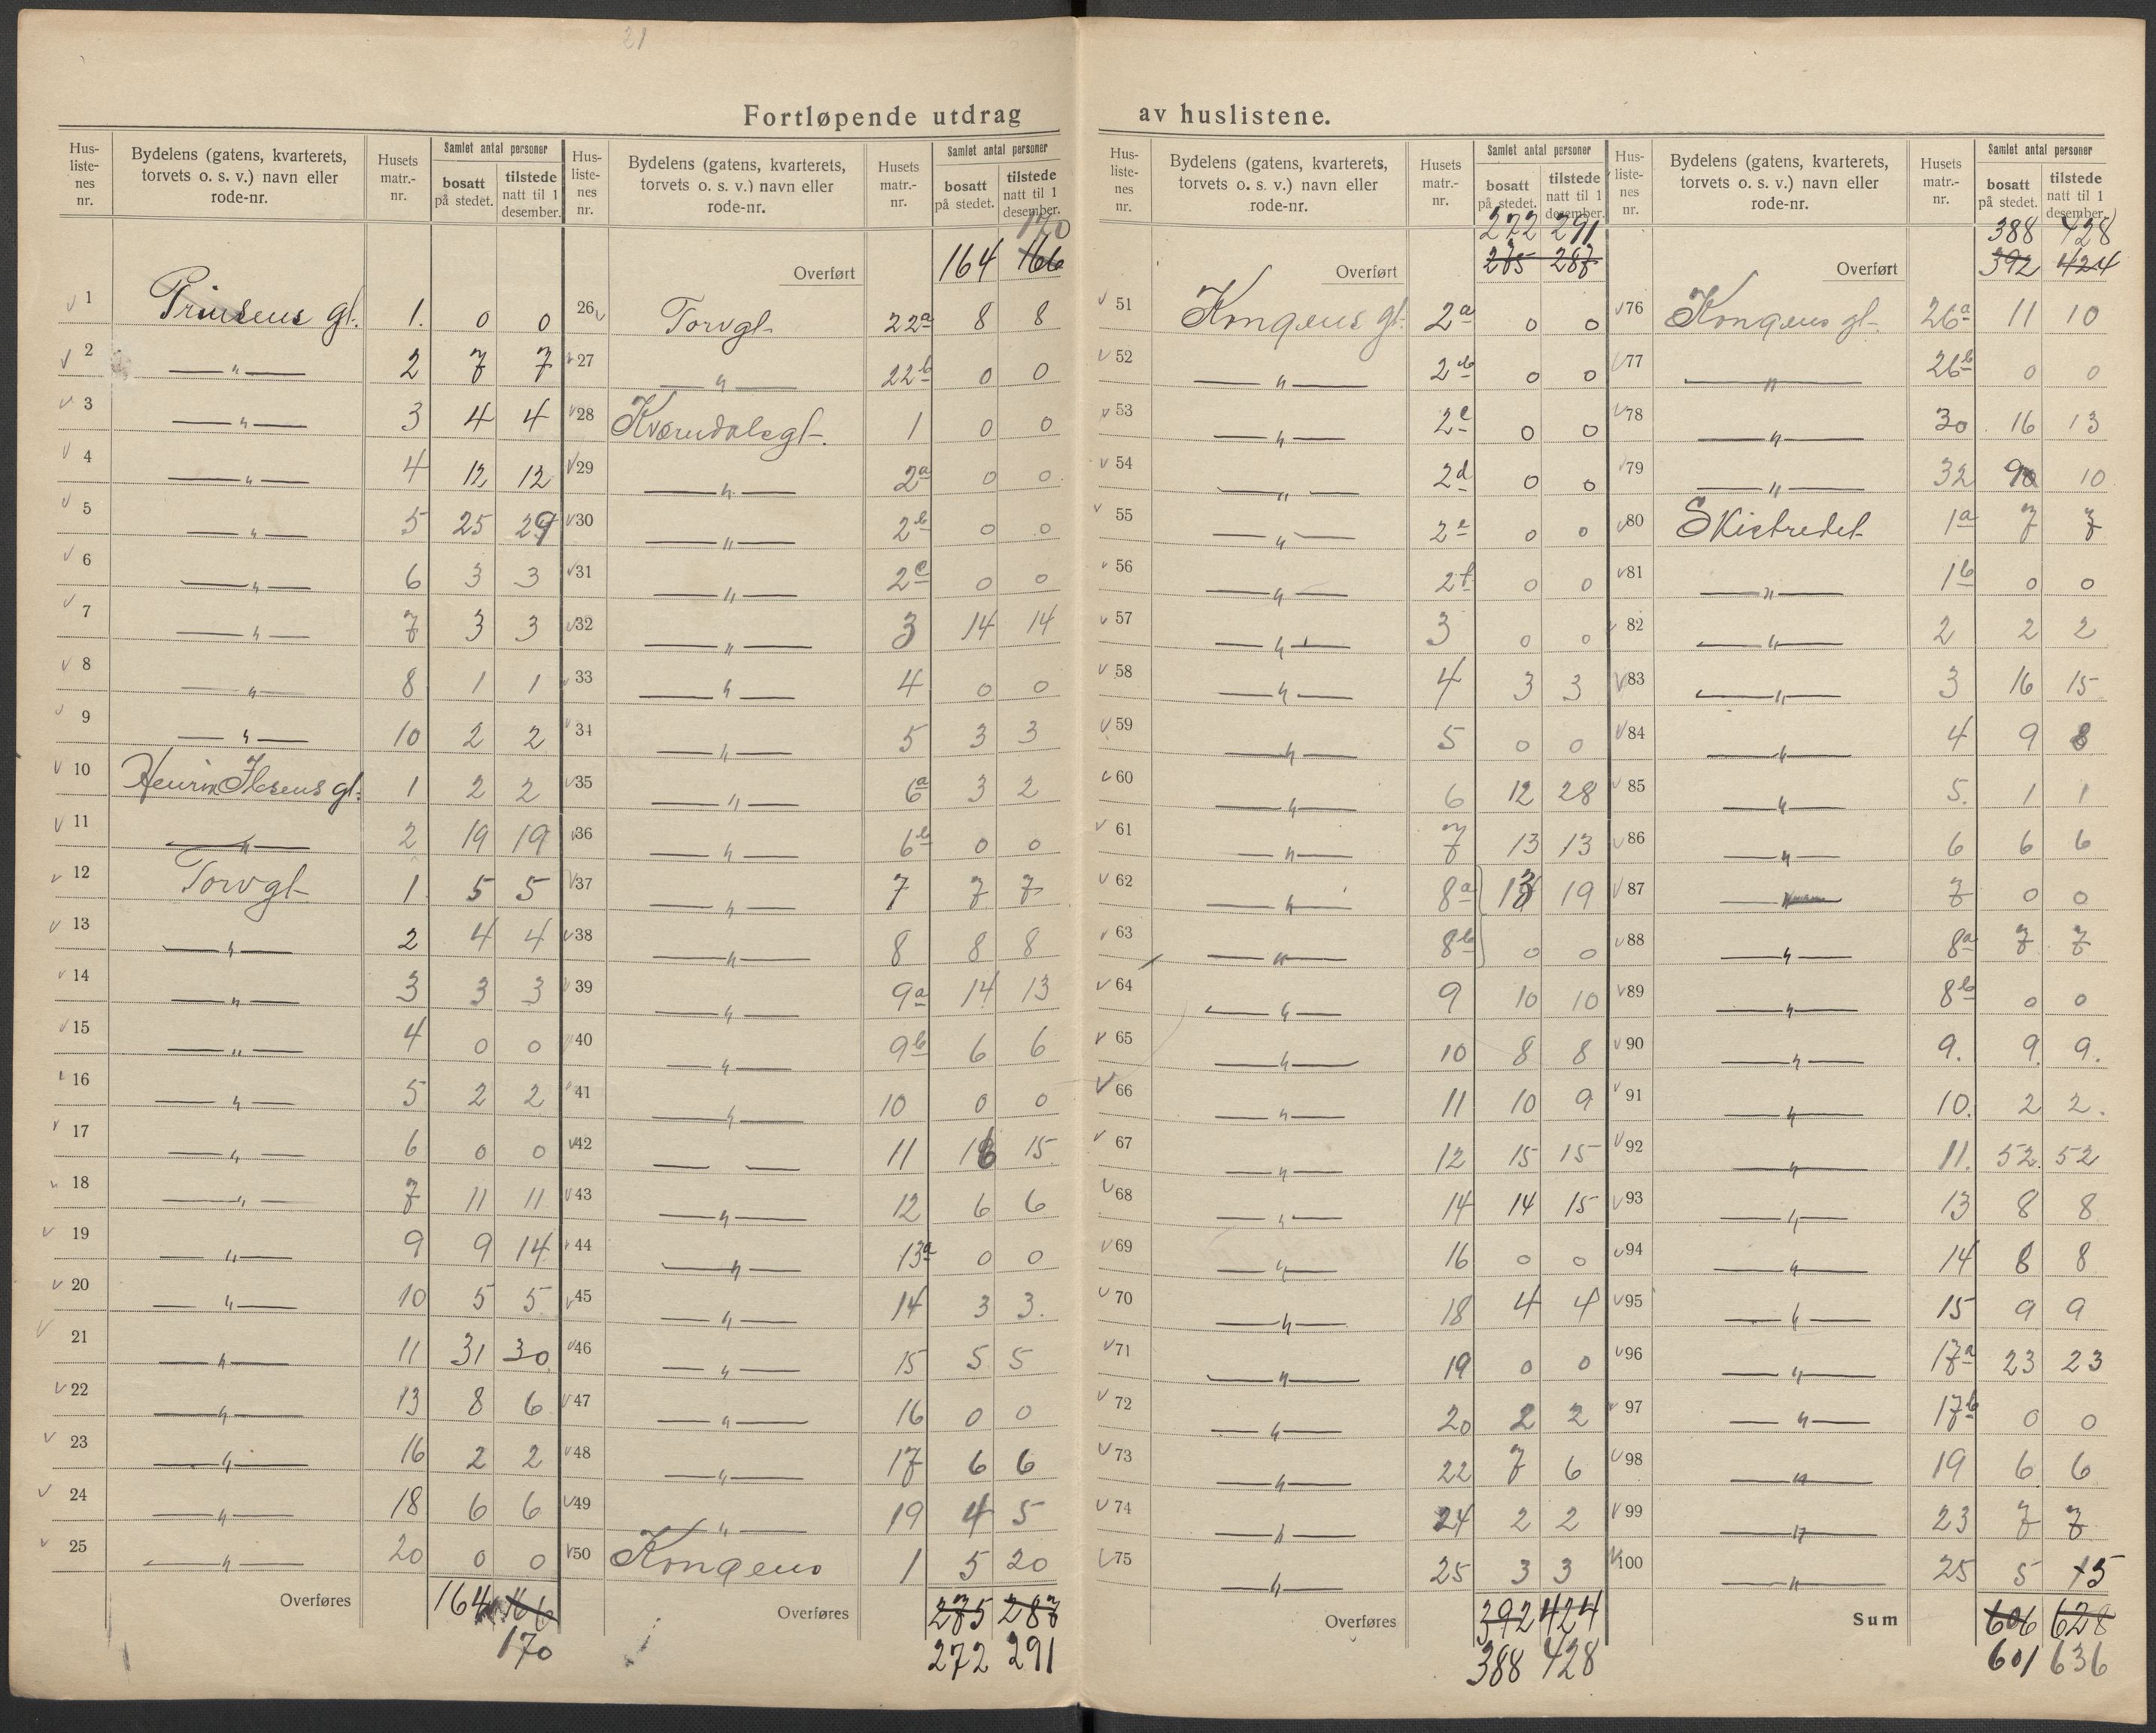 21
Fortløpende utdrag av huslistene.
Hus-liste-nes nr. | Bydelens (gatens, kvarterets, torvets o. s. v.) navn eller rode-nr. | Husets matr.-nr. | Samlet antal personer | bosatt på stedet. | tilstede natt til 1 desember.
1 Prinsens gt. 1. 0 0
2 —„— 2 7 7
3 —„— 3 4 4
4 —„— 4 12 12
5 —„— 5 25 29
6 —„— 6 3 3
7 —„— 7 3 3
8 —„— 8 1 1
9 —„— 10 2 2
10 Henrik Ibsens gt. 1 2 2
11 —„— 2 19 19
12 Torvgt 1 5 5
13 —„— 2 4 4
14 —„— 3 3 3
15 —„— 4 0 0
16 —„— 5 2 2
17 —„— 6 0 0
18 —„— 7 11 11
19 —„— 9 9 14
20 —„— 10 5 5
21 —„— 11 31 30
22 —„— 13 8 6
23 —„— 16 2 2
24 —„— 18 6 6
25 —„— 20 0 0
Overføres 164 166
170
Hus-liste-nes nr. | Bydelens (gatens, kvarterets, torvets o. s. v.) navn eller rode-nr. | Husets matr.-nr. | Samlet antal personer | bosatt på stedet. | tilstede natt til 1 desember.
170
Overført 164 166
26 Torvgt 22a 8 8
27 —„— 22b 0 0
28 Kværndalsgt. 1 0 0
29 —„— 2a 0 0
30 —„— 2b 0 0
31 —„— 2c 0 0
32 —„— 3 14 14
33 —„— 4 0 0
34 —„— 5 3 3
35 —„— 6a 3 2
36 —„— 6b 0 0
37 —„— 7 7 7
38 —„— 8 8 8
39 —„— 9a 14 13
40 —„— 9b 6 6
41 —„— 10 0 0
42 — — 11 16 15
43 —„— 12 6 6
44 —„— 13a 0 0
45 —„— 14 3 3.
46 —„— 15 5 5
47 —„— 16 0 0
48 —„— 17 6 6
49 —„— 19 4 5
50 Kongens 1 5 20
Overføres 275 287
272 291
Hus-liste-nes nr. | Bydelens (gatens, kvarterets, torvets o. s. v.) navn eller rode-nr. | Husets matr.-nr. | Samlet antal personer | bosatt på stedet. | tilstede natt til 1 desember.
272 291
Overført 275 287
51 Kongens gt. 2a 0 0
52 —„— 2b 0 0
53 —„— 2c 0 0
54 —„— 2d 0 0
55 —„— 2e 0 0
56 —„— 2f 0 0
57 —„— 3 0 0
58 —„— 4 3 3
59 —„— 5 0 0
60 —„— 6 12 28
61 —„— 7 13 13
62 —„— 8a 13 19
63 —„— 8b 0 0
64 —„— 9 10 10
65 —„— 10 8 8
66 —„— 11 10 9
67 —„— 12 15 15
68 —„— 14 14 15
69 —„— 16 0 0
70 —„— 18 4 4
71 —„— 19 0 0
72 —„— 20 2 2
73 —„— 22 7 6
74 —„— 24 2 2
75 —„— 25 3 3
Overføres 392 424
388 428
Hus-liste-nes nr. | Bydelens (gatens, kvarterets, torvets o. s. v.) navn eller rode-nr. | Husets matr.-nr. | Samlet antal personer | bosatt på stedet. | tilstede natt til 1 desember.
388 428
Overført 392 424
76 Kongens gt. 26a 11 10
77 —„— 26b 0 0
78 —„— 30 16 13
79 —„— 32 10
80 Skistredet 1a 7 7
81 —„— 1b 0 0
82 —„— 2 2 2
83 —„— 3 16 15
84 —„— 4 9 8
85 —„— 5. 1 1
86 —„— 6 6 6
87 —„— 7 0 0
88 —„— 8a 7 7
89 —„— 8b 0 0
90 —„— 9. 9. 9.
91 —„— 10. 2 2.
92 —„— 11. 52. 52
93 —„— 13 8 8
94 —„— 14 8 8
95 —„— 15 9 9
96 —„— 17a 23 23
97 —„— 17b 0 0
98 —„— 19 6 6
99 —„— 23 7 7
100 —„— 25 5 15
Sum 606 628
601 636